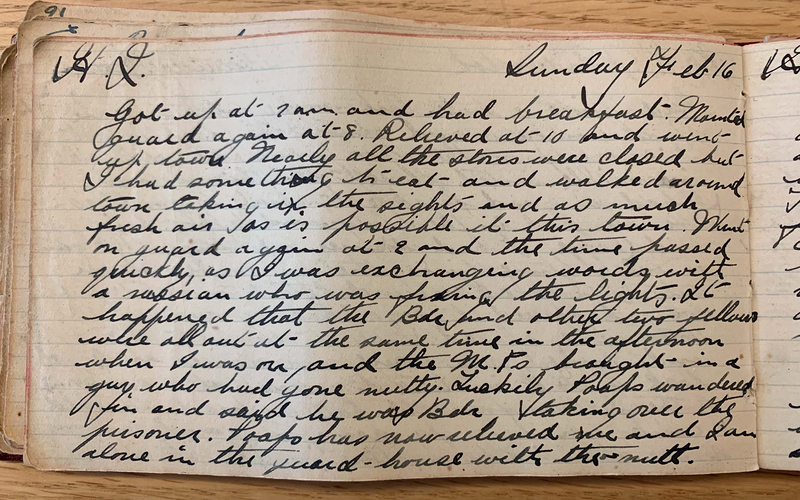 91
Sunday Feb 16
Got up at 7 am and had breakfast. Mounted
guard again at 8. Relieved at 10 and went
up town. Nearly all the stores were closed but
I had something to eat and walked around
town taking in the sights and as much
fresh air as is possible in this town. Went
on guard again at 2 and the time passed
quickly, as I was exchanging words with
a russian who was fixing the lights. It
happened that the Bdr and other two fellows
were all out at the same time in the afternoon
when I was on, and the M.P.s brought in a
guy who had gone nutty. Luckily Poaps wandered
in and said he was Bdr taking over the
prisoner. Poaps has now relieved me and I am
alone in the guard-house with the nutt.